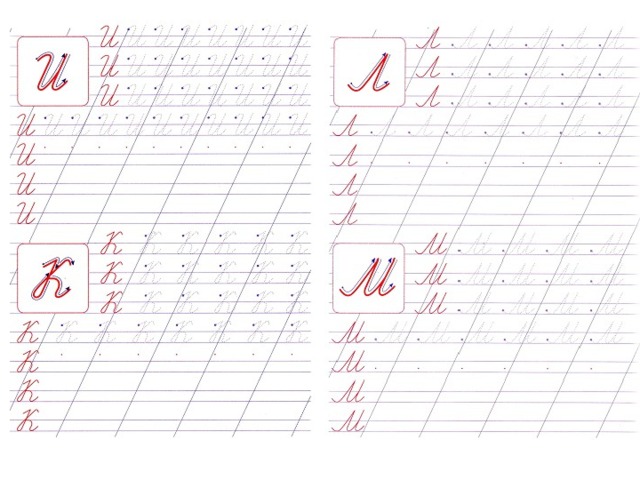 И
И И И И И И И И
И И И И И И И И
И И И И И И И И
И И И И И И И И И И И
И
И
И
К
К К К К К К
К К К К К К
К К К К К К
К К К К К К К К
К
К
К
Л
Л Л Л Л Л Л
Л Л Л Л Л Л
Л Л Л Л Л Л
Л Л Л Л Л Л Л Л
Л
Л
Л
М
М М М М М
М М М М М
М М М М М
М М М М М М М
М
М
М